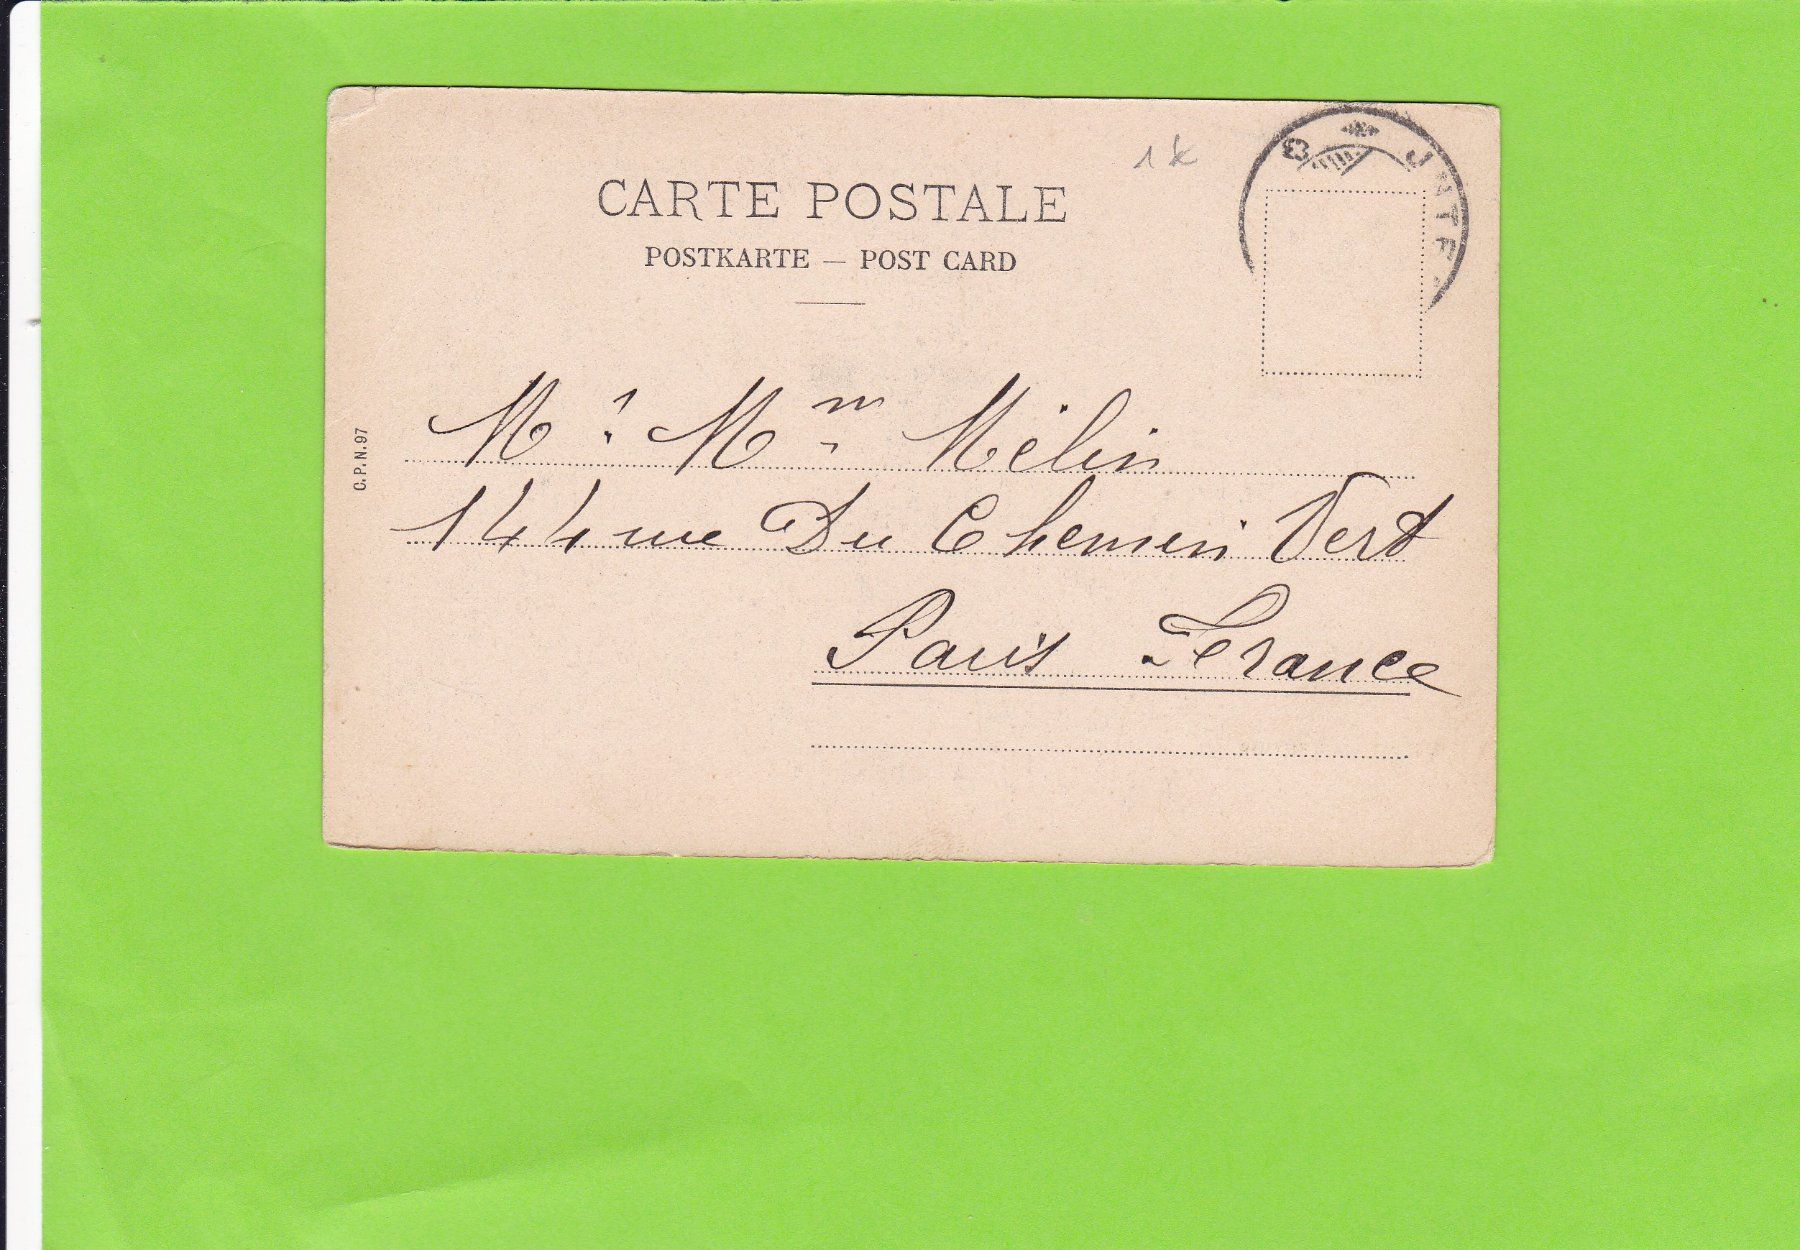 CARTE POSTALE
POSTKARTE — POST CARD
C.P.N. 97
Mr. Mm Mélin
144 rue Du Chemin Vert
Paris France